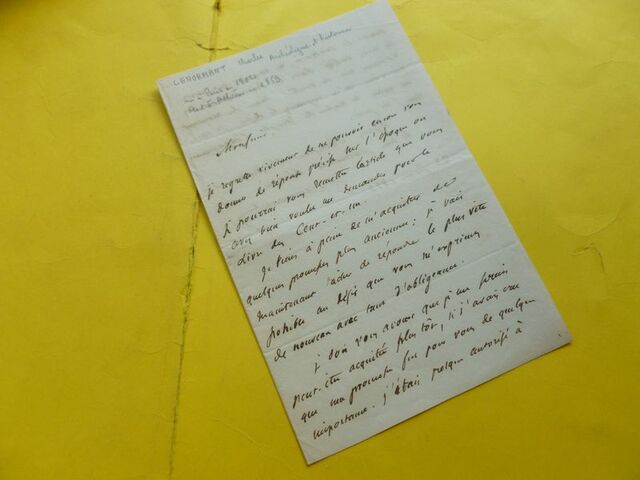 LENORMANT Charles Archéologue et historien
Paris 1802
Mort à Athènes en 1859
Monsieur
je regrette vivement de ne pouvoir encore vous
donner de réponse précise sur l'époque où
je pourrai vous remettre l'article que vous
avez bien voulu me demander pour le
Livre des Cent-et-un.
Je viens à peine de m'acquitter de
quelques promesses plus anciennes : je vais
maintenant tâcher de répondre le plus vite
possible au désir que vous m'exprimez
de nouveau avec tant d'obligeance.
je dois vous avouer que je me serais
peut-être acquitté plus tôt, si j'avais cru
que ma promesse fut pour vous de quelque
importance. j'étais presque autorisé à